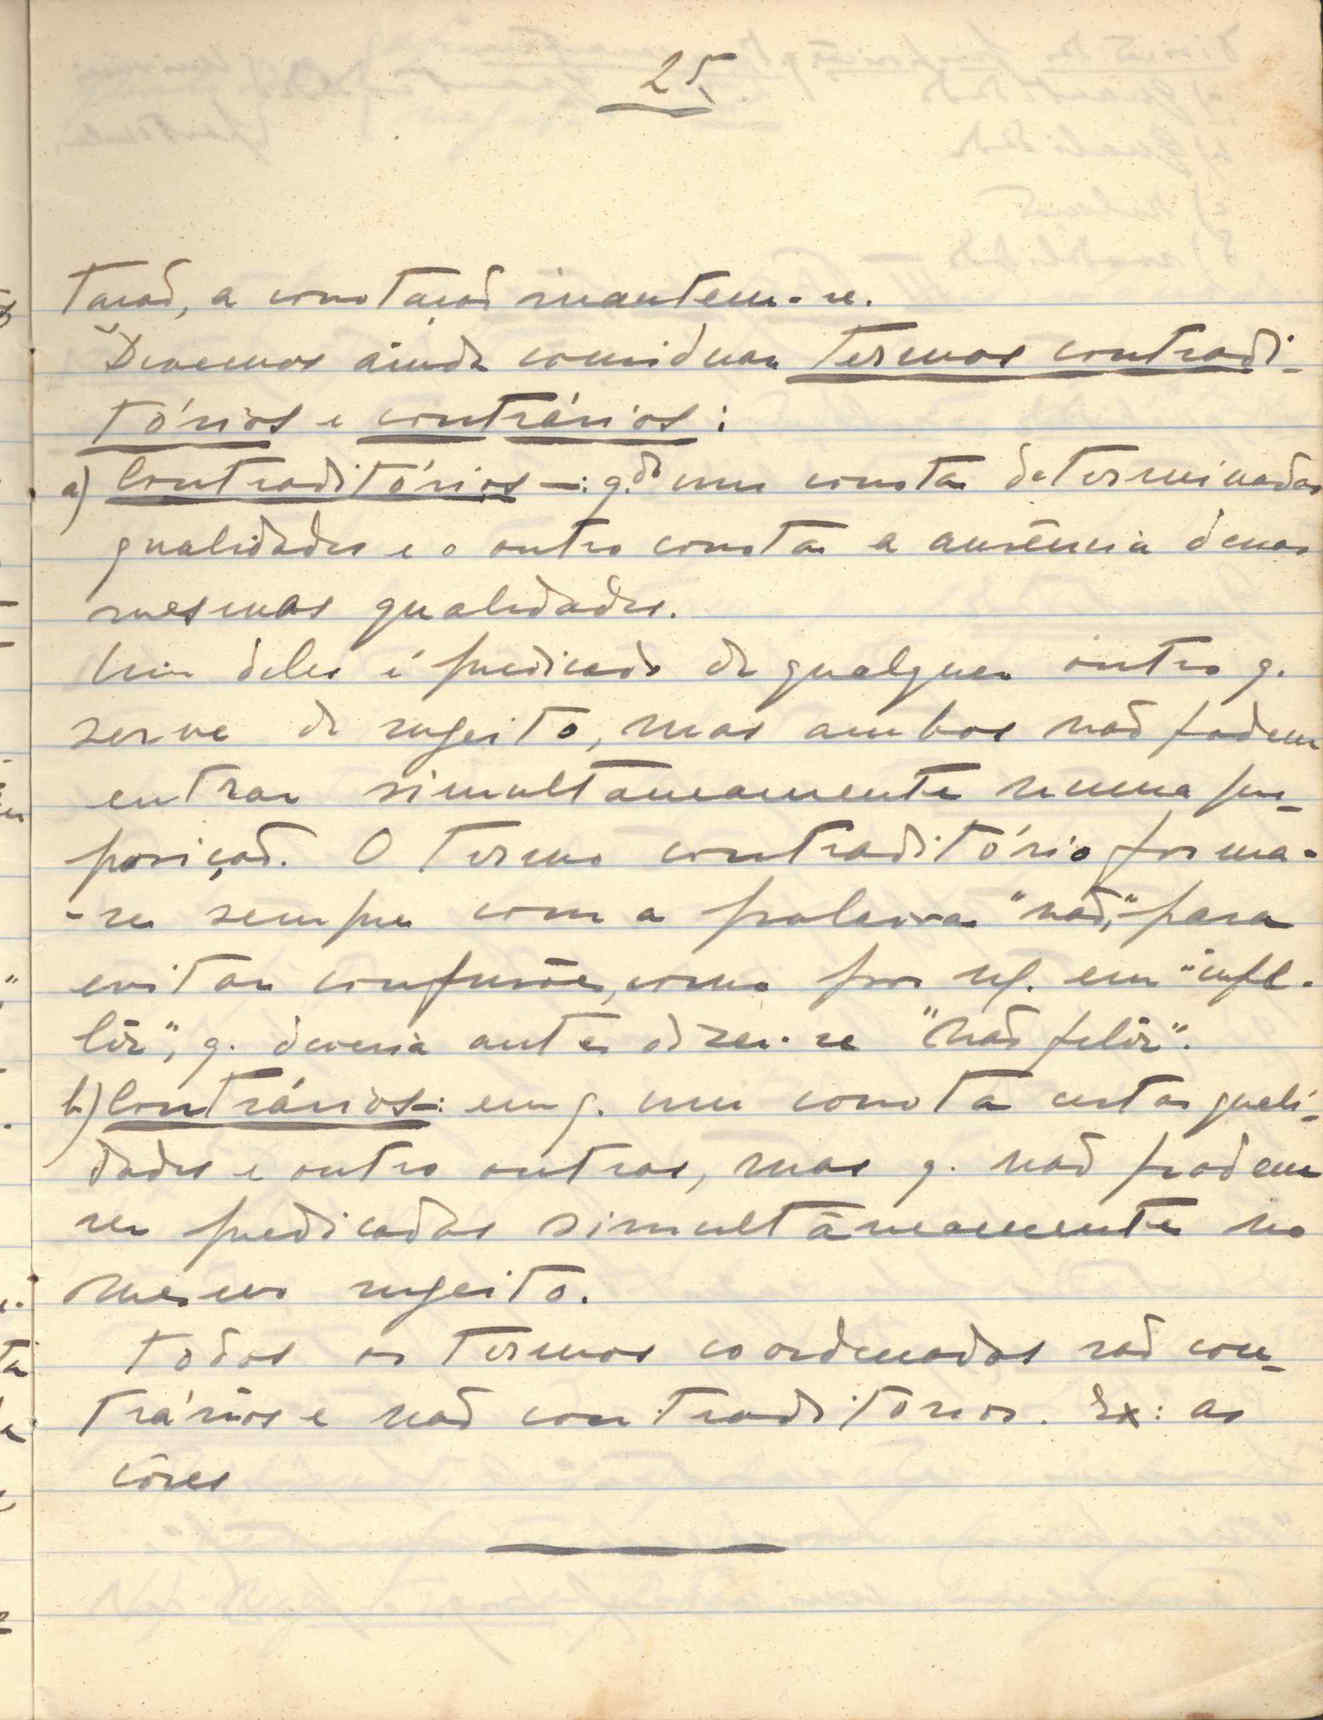 25
tação, a conotação mantem-se.
Devemos ainda considerar termos contradi-
tórios e contrários:
a) Contraditórios -: q.do um conota determinadas
qualidades e o outro conota a ausência denas
mesmas qualidades.
Um deles é predicado de qualquer outro q.
serve de sugeito, mas ambos não podem
entrar simultâneamente numa pro-
posição. O termo contraditório forma-
-se sempre com a palavra "não", para
evitar confusões, como por ex. em "infe-
liz", q. deveria antes dizer-se "não feliz".
b) Contrários -: em q. um conota certas quali-
dades e outro outras, mas q. não podem
ser predicados simultâneamente no
mesmo sugeito.
Todos os termos coordenados são con-
trários e não contraditórios. Ex: as
côres